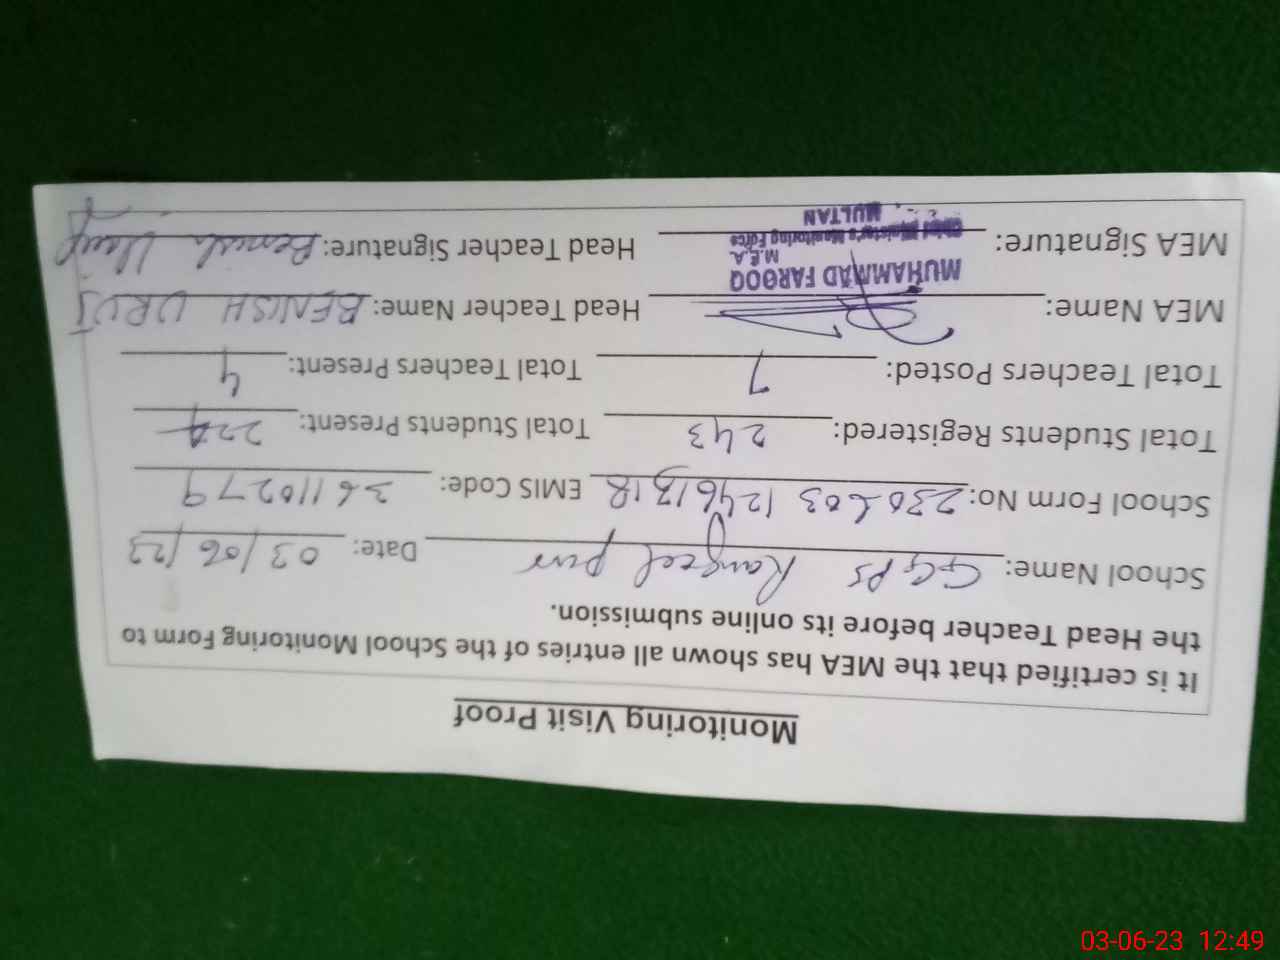 Monitoring Visit Proof
It is certified that the MEA has shown all entries of the School Monitoring Form to
the Head Teacher before its online submission.
School Name: GGPS Rangeel pur Date: 03/06/23
School Form No: EMIS Code: 36110279
Total Students Registered: 243 Total Students Present:
Total Teachers Posted: 7 Total Teachers Present: 4
MEA Name: Head Teacher Name: BENISH URUJ
MUHAMMAD FAROOQ
M.E.A.
MEA Signature: Head Teacher Signature: Benish Uruj
Chief Minister's Monitoring Force
MULTAN
03-06-23 12:49